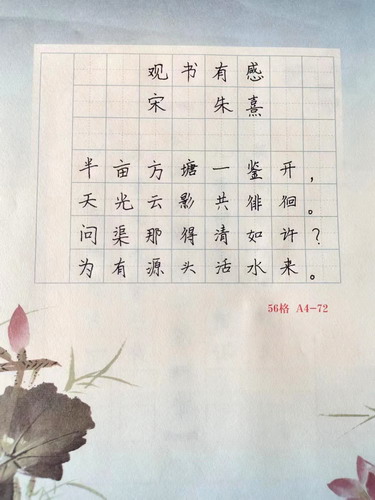 观书有感
宋 朱熹
半亩方塘一鉴开，
天光云影共徘徊。
问渠那得清如许？
为有源头活水来。
56格 A4-72